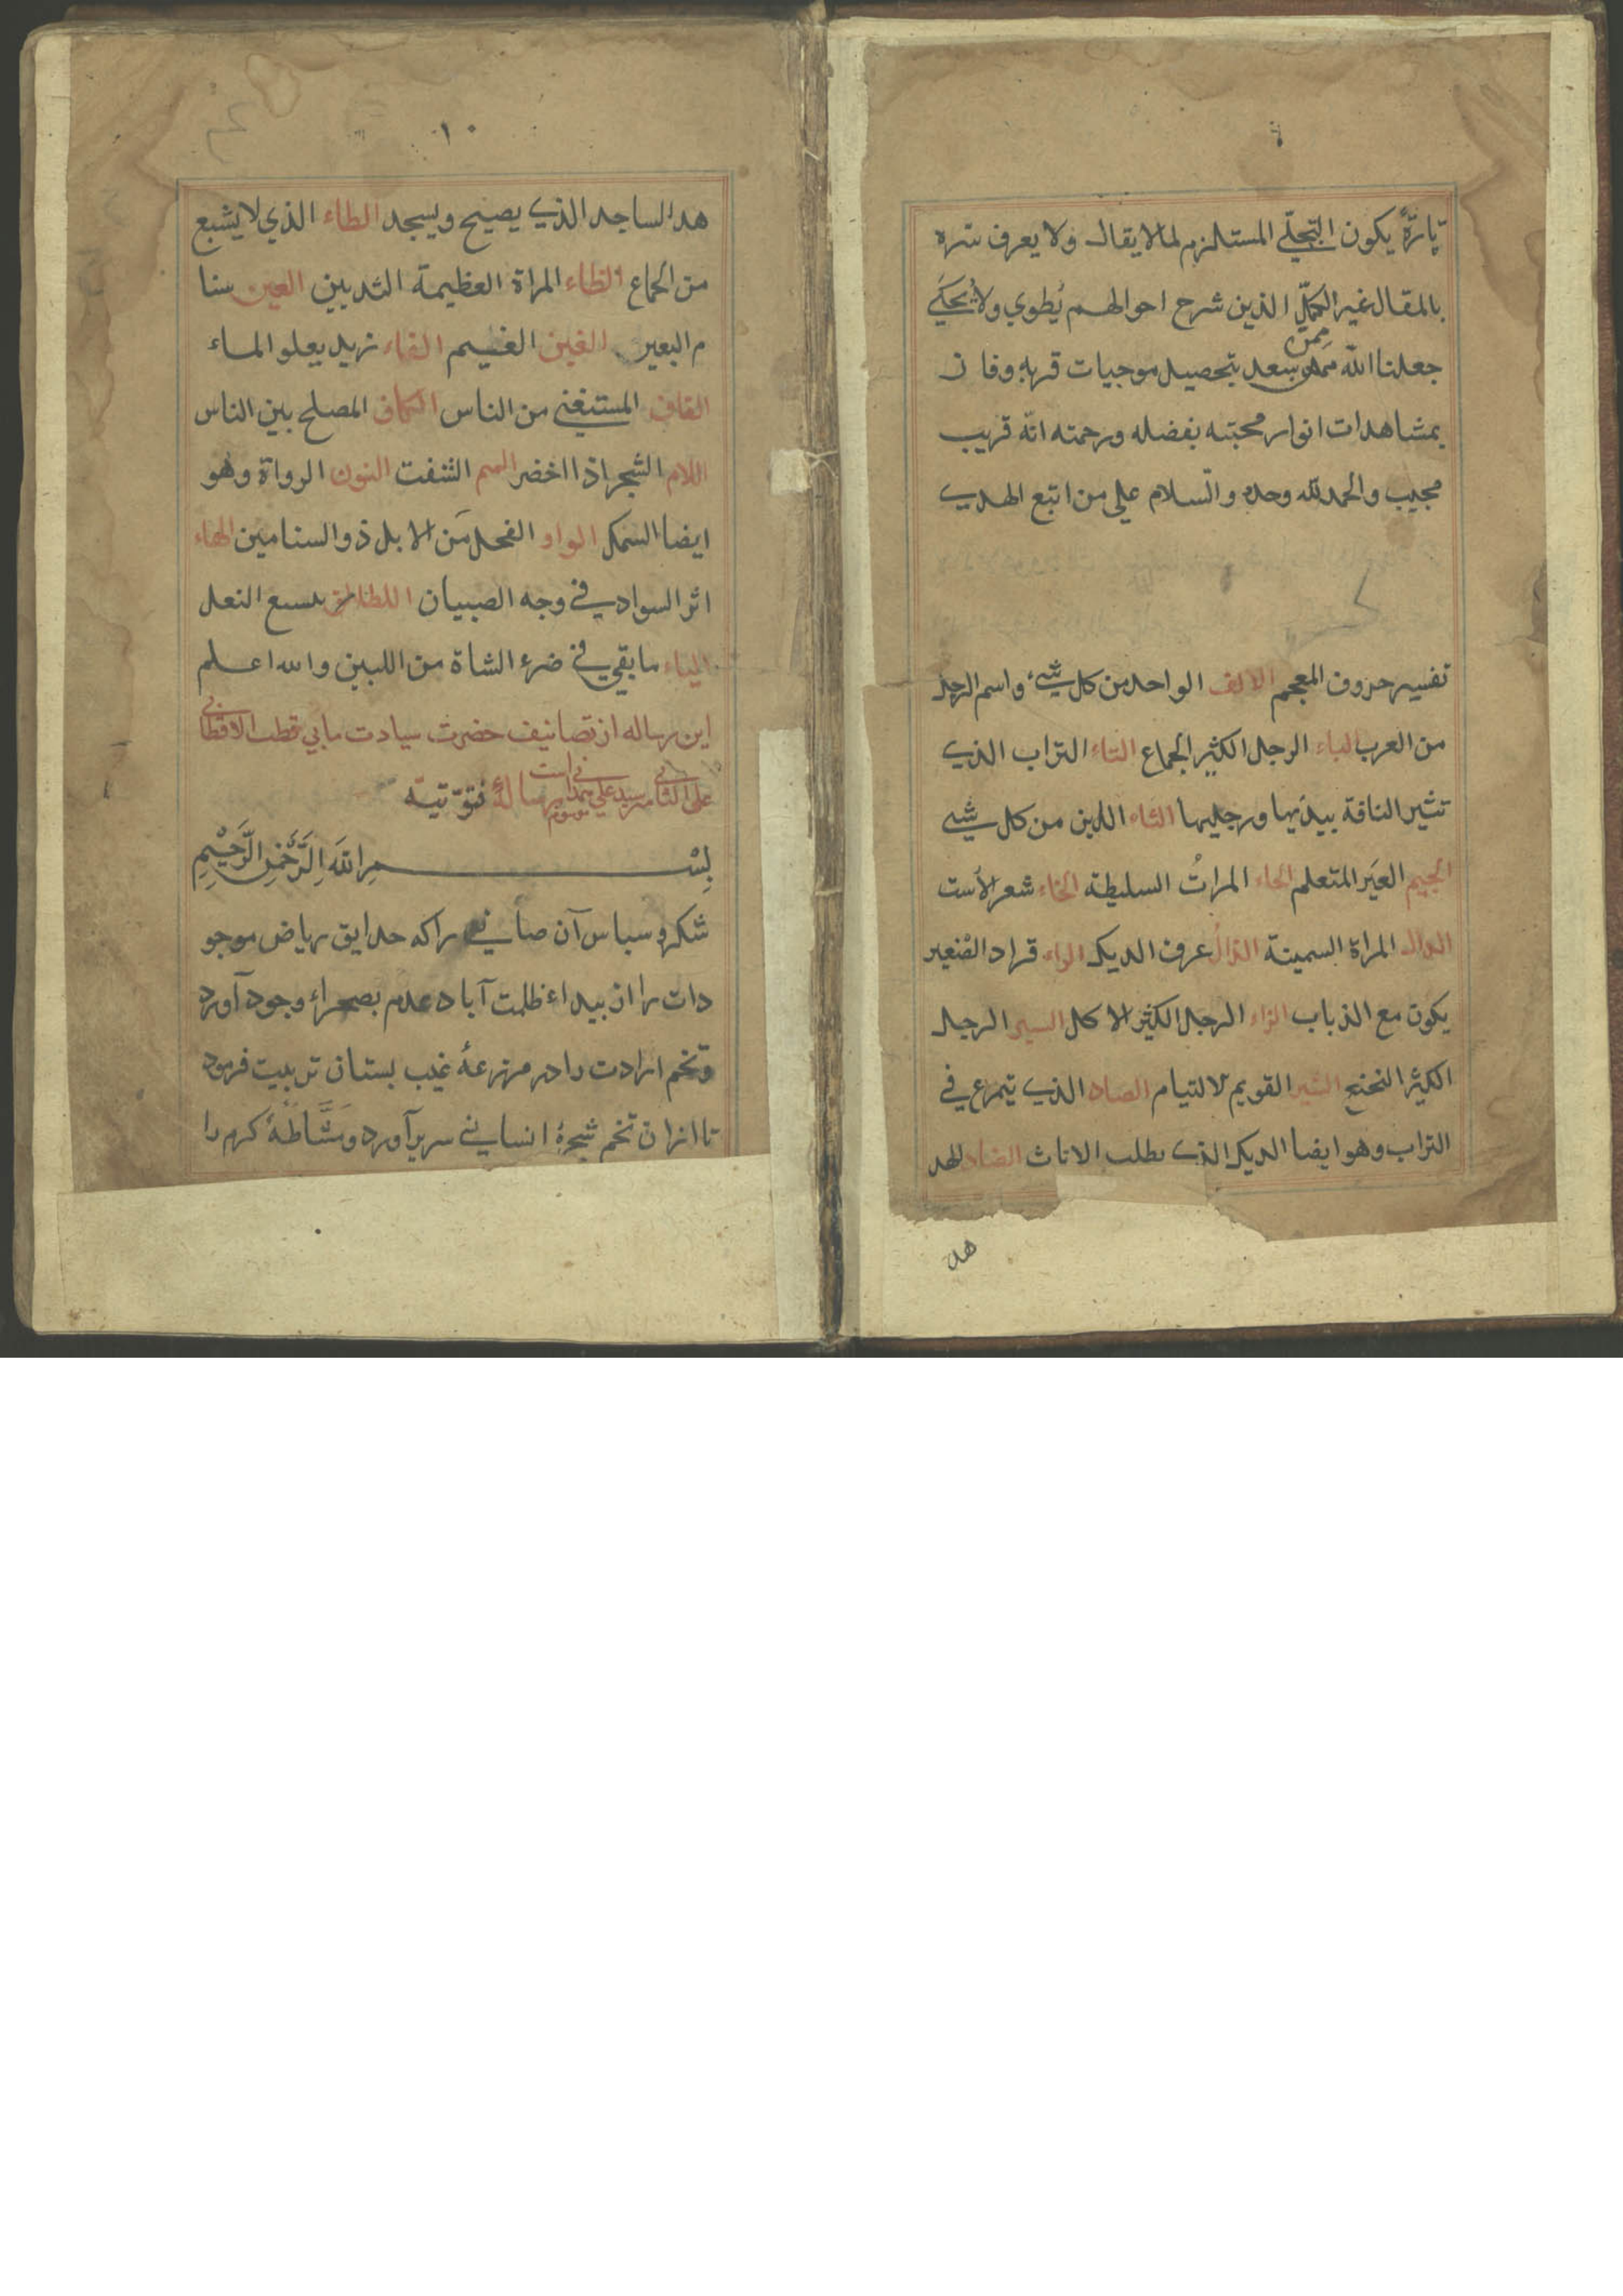 تارةً يكون التجلّي المستلزم لما لا يقال ولا يعرف سره
بالمقال غير الكمّل الذين شرح احوالهم يُطوي ولا يحكي
جعلنا الله ممن سعد بتحصيل موجبات قربه وفاز
بمشاهدات انوار محبته بفضله ورحمته انّه قريب
مجيب والحمد لله وحده والسّلام علي من اتبع الهدي
تفسير حروف المعجم الالف الواحد من كل شيء واسم الرجل
من العرب الباء الرجل الكثير الجماع التاء التراب الذي
تثير الناقة بيديها ورجليها الثاء اللين من كل شي
الجيم العير المتعلم الحاء المرات السليطة الخاء شعر الاست
الدال المراة السمينة الذال عرف الديك الراء قراد الصغير
يكون مع الذباب الزاء الرجل الكثير الاكل السين الرجل
الكثير النحنح الشين القويم لالتيام الصاد الذي يتمرع في
التراب وهو ايضا الديك الذي يطلب الاناث الضاد الهد
هد
١٠
هد الساجد الذي يصيح ويسجد الطاء الذي لا يشبع
من الجماع الظاء المراة العظيمة الثديين العين سنا
م البعير الغين الغيم الفاء زبد يعلو الماء
القاف المستغني من الناس الكاف المصلح بين الناس
اللام الشجر اذا اخضر الميم النون الرواة وهو
ايضا السمك الواو الفحل من الابل ذو السنامين الهاء
اثر السواد في وجه الصبيان النعل
الياء ما بقي في ضرء الشاة من اللبين والله اعلم
اين رساله از تصانيف حضرت سيادت مابي قطب الاقطابي
علي الثاني مير سيد علي همداني است موسوم رسالهٔ فتوّتيّه
بِسْمِ اللهِ الرَّحْمٰنِ الرَّحِيْمِ
شكر و سپاس آن صانعي را كه حدايق رياض موجو
دات را از بيداء ظلمت آباد عدم بصحراء وجود آورد
وتخم ارادت را در مزرعهٔ غيب بستان تربيت فرمود
تا از ان تخم شجرهٔ انساني سر برآورد ومَشَّاطَهٔ كرم را